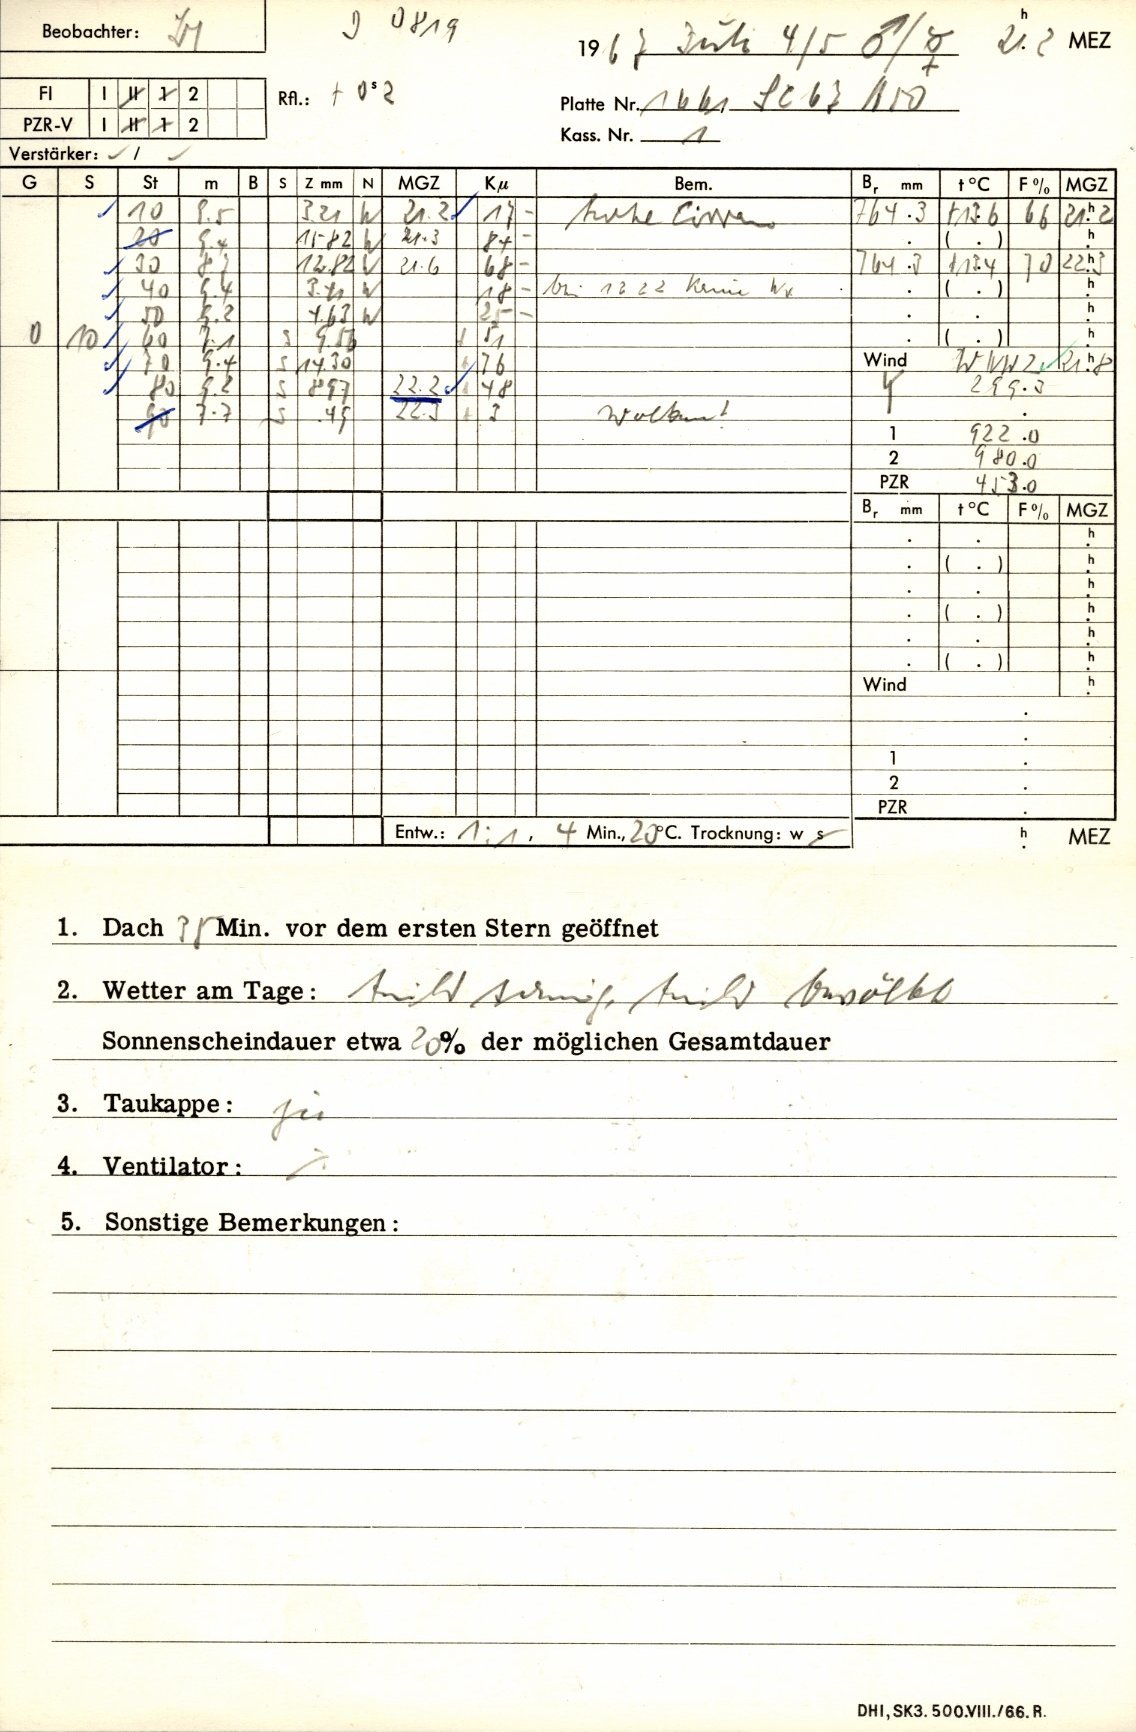 Beobachter:
D 0819
1967 Juli 4/5 ♂/☿ 21.2 h MEZ
FI I II 1 2
PZR-V I II 1 2
Rfl.: + 0 s 2
Platte Nr. 1661,
Kass. Nr. 1
Verstärker: /
G S St m B S Z mm N MGZ Kμ Bem. Br mm t °C F % MGZ
10 9.5 3.21 W 21.2 17 - hohe Cirren 764.3 +13.6 66 21.h2
20 9.4 15.82 W 21.3 84 - . ( . ) h
30 8.7 12.82 W 21.6 68 - 764.3 +13.4 70 22.h3
40 9.4 3.41 W 18 - . ( . ) h
50 9.2 4.63 W 25 - . . h
0 10 60 7.1 S 9.56 + 51 . ( . ) h
70 9.4 S 14.30 + 76 Wind WNW 2 21.h8
80 9.2 S 8.97 22.2 + 48 299.3
90 7.7 S .49 22.3 + 3 Wolken! .
1 922.0
2 980.0
PZR 453.0
Br mm t °C F % MGZ
. . h
. ( . ) h
. . h
. ( . ) h
. . h
. ( . ) h
Wind h
.
.
1 .
2 .
PZR .
Entw.: 1:1, 4 Min., 20°C. Trocknung: w s h MEZ
1. Dach 35 Min. vor dem ersten Stern geöffnet
2. Wetter am Tage: teils sonnig, teils bewölkt
Sonnenscheindauer etwa 20% der möglichen Gesamtdauer
3. Taukappe: ja
4. Ventilator:
5. Sonstige Bemerkungen:
DHI, SK3. 500.VIII./66. R.